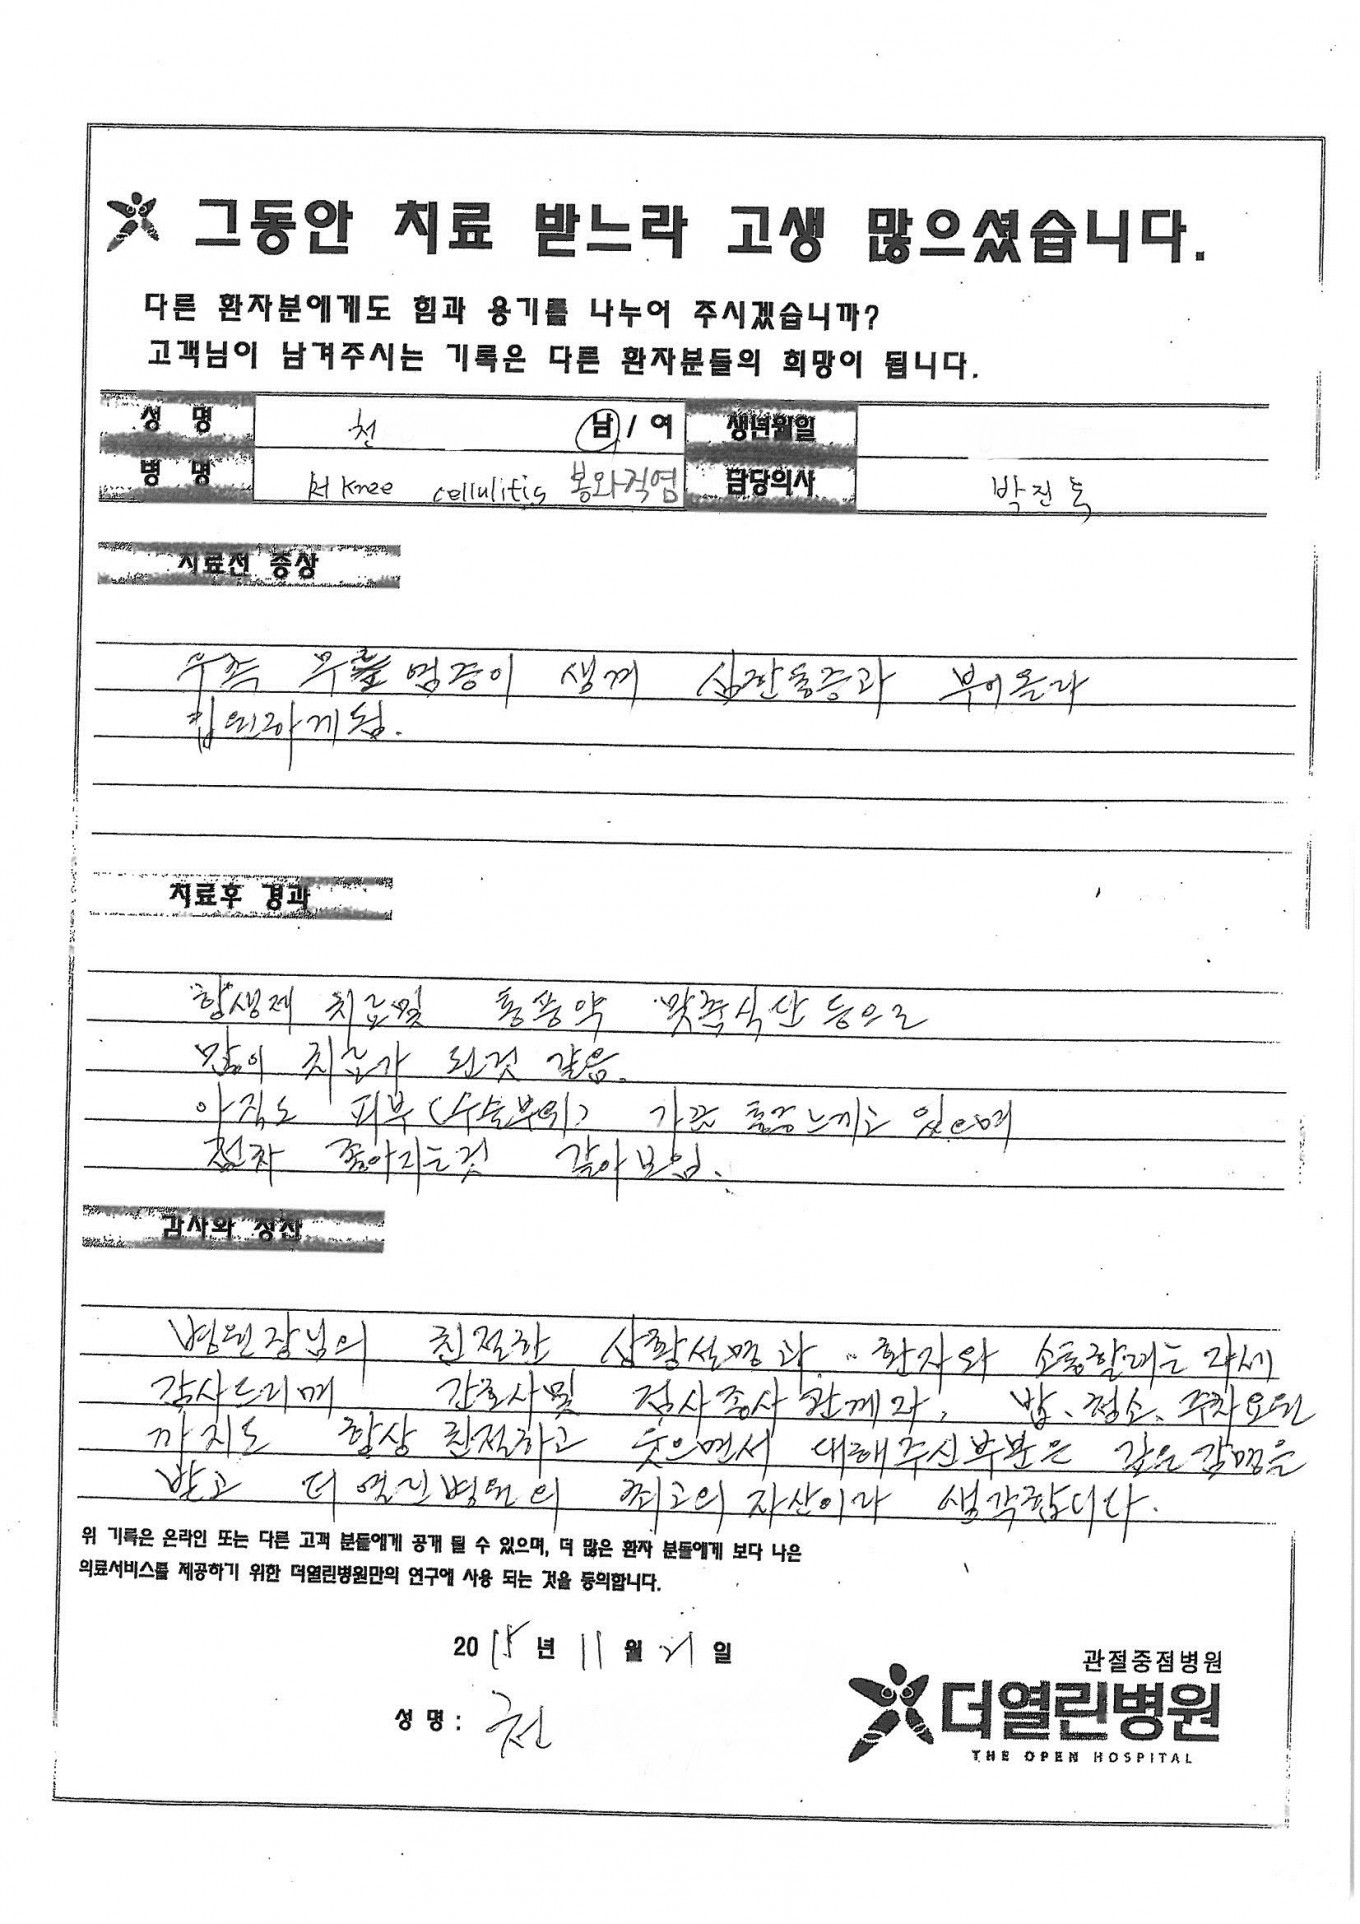 그동안 치료 받느라 고생 많으셨습니다.
다른 환자분에게도 힘과 용기를 나누어 주시겠습니까?
고객님이 남겨주시는 기록은 다른 환자분들의 희망이 됩니다.
성 명 천 남 / 여 생년월일
병 명 Knee cellulitis 봉와직염 담당의사 박진독
치료전 증상
우측 무릎 염증이 생겨 심한통증과 부어올라
입원하게됨.
치료후 경과
항생제 치료및 통풍약 맞춤식단 등으로
많이 치료가 된것 같음.
아직도 피부(수술부위) 가끔 통증느끼고 있으며
점차 좋아지는것 같아보임.
감사와 칭찬
병원장님의 친절한 상황설명과 환자와 소통할려는 자세
감사드리며 간호사및 청사종사 관계자, 밥, 청소, 주차요원
까지도 항상 친절하고 웃으면서 대해주신부분은 깊은감명을
받고 더열린병원의 최고의 자산이라 생각합니다.
위 기록은 온라인 또는 다른 고객 분들에게 공개 될 수 있으며, 더 많은 환자 분들에게 보다 나은
의료서비스를 제공하기 위한 더열린병원만의 연구에 사용 되는 것을 동의합니다.
2015년 11월 21일
성 명 : 천
관절중점병원
더열린병원
THE OPEN HOSPITAL